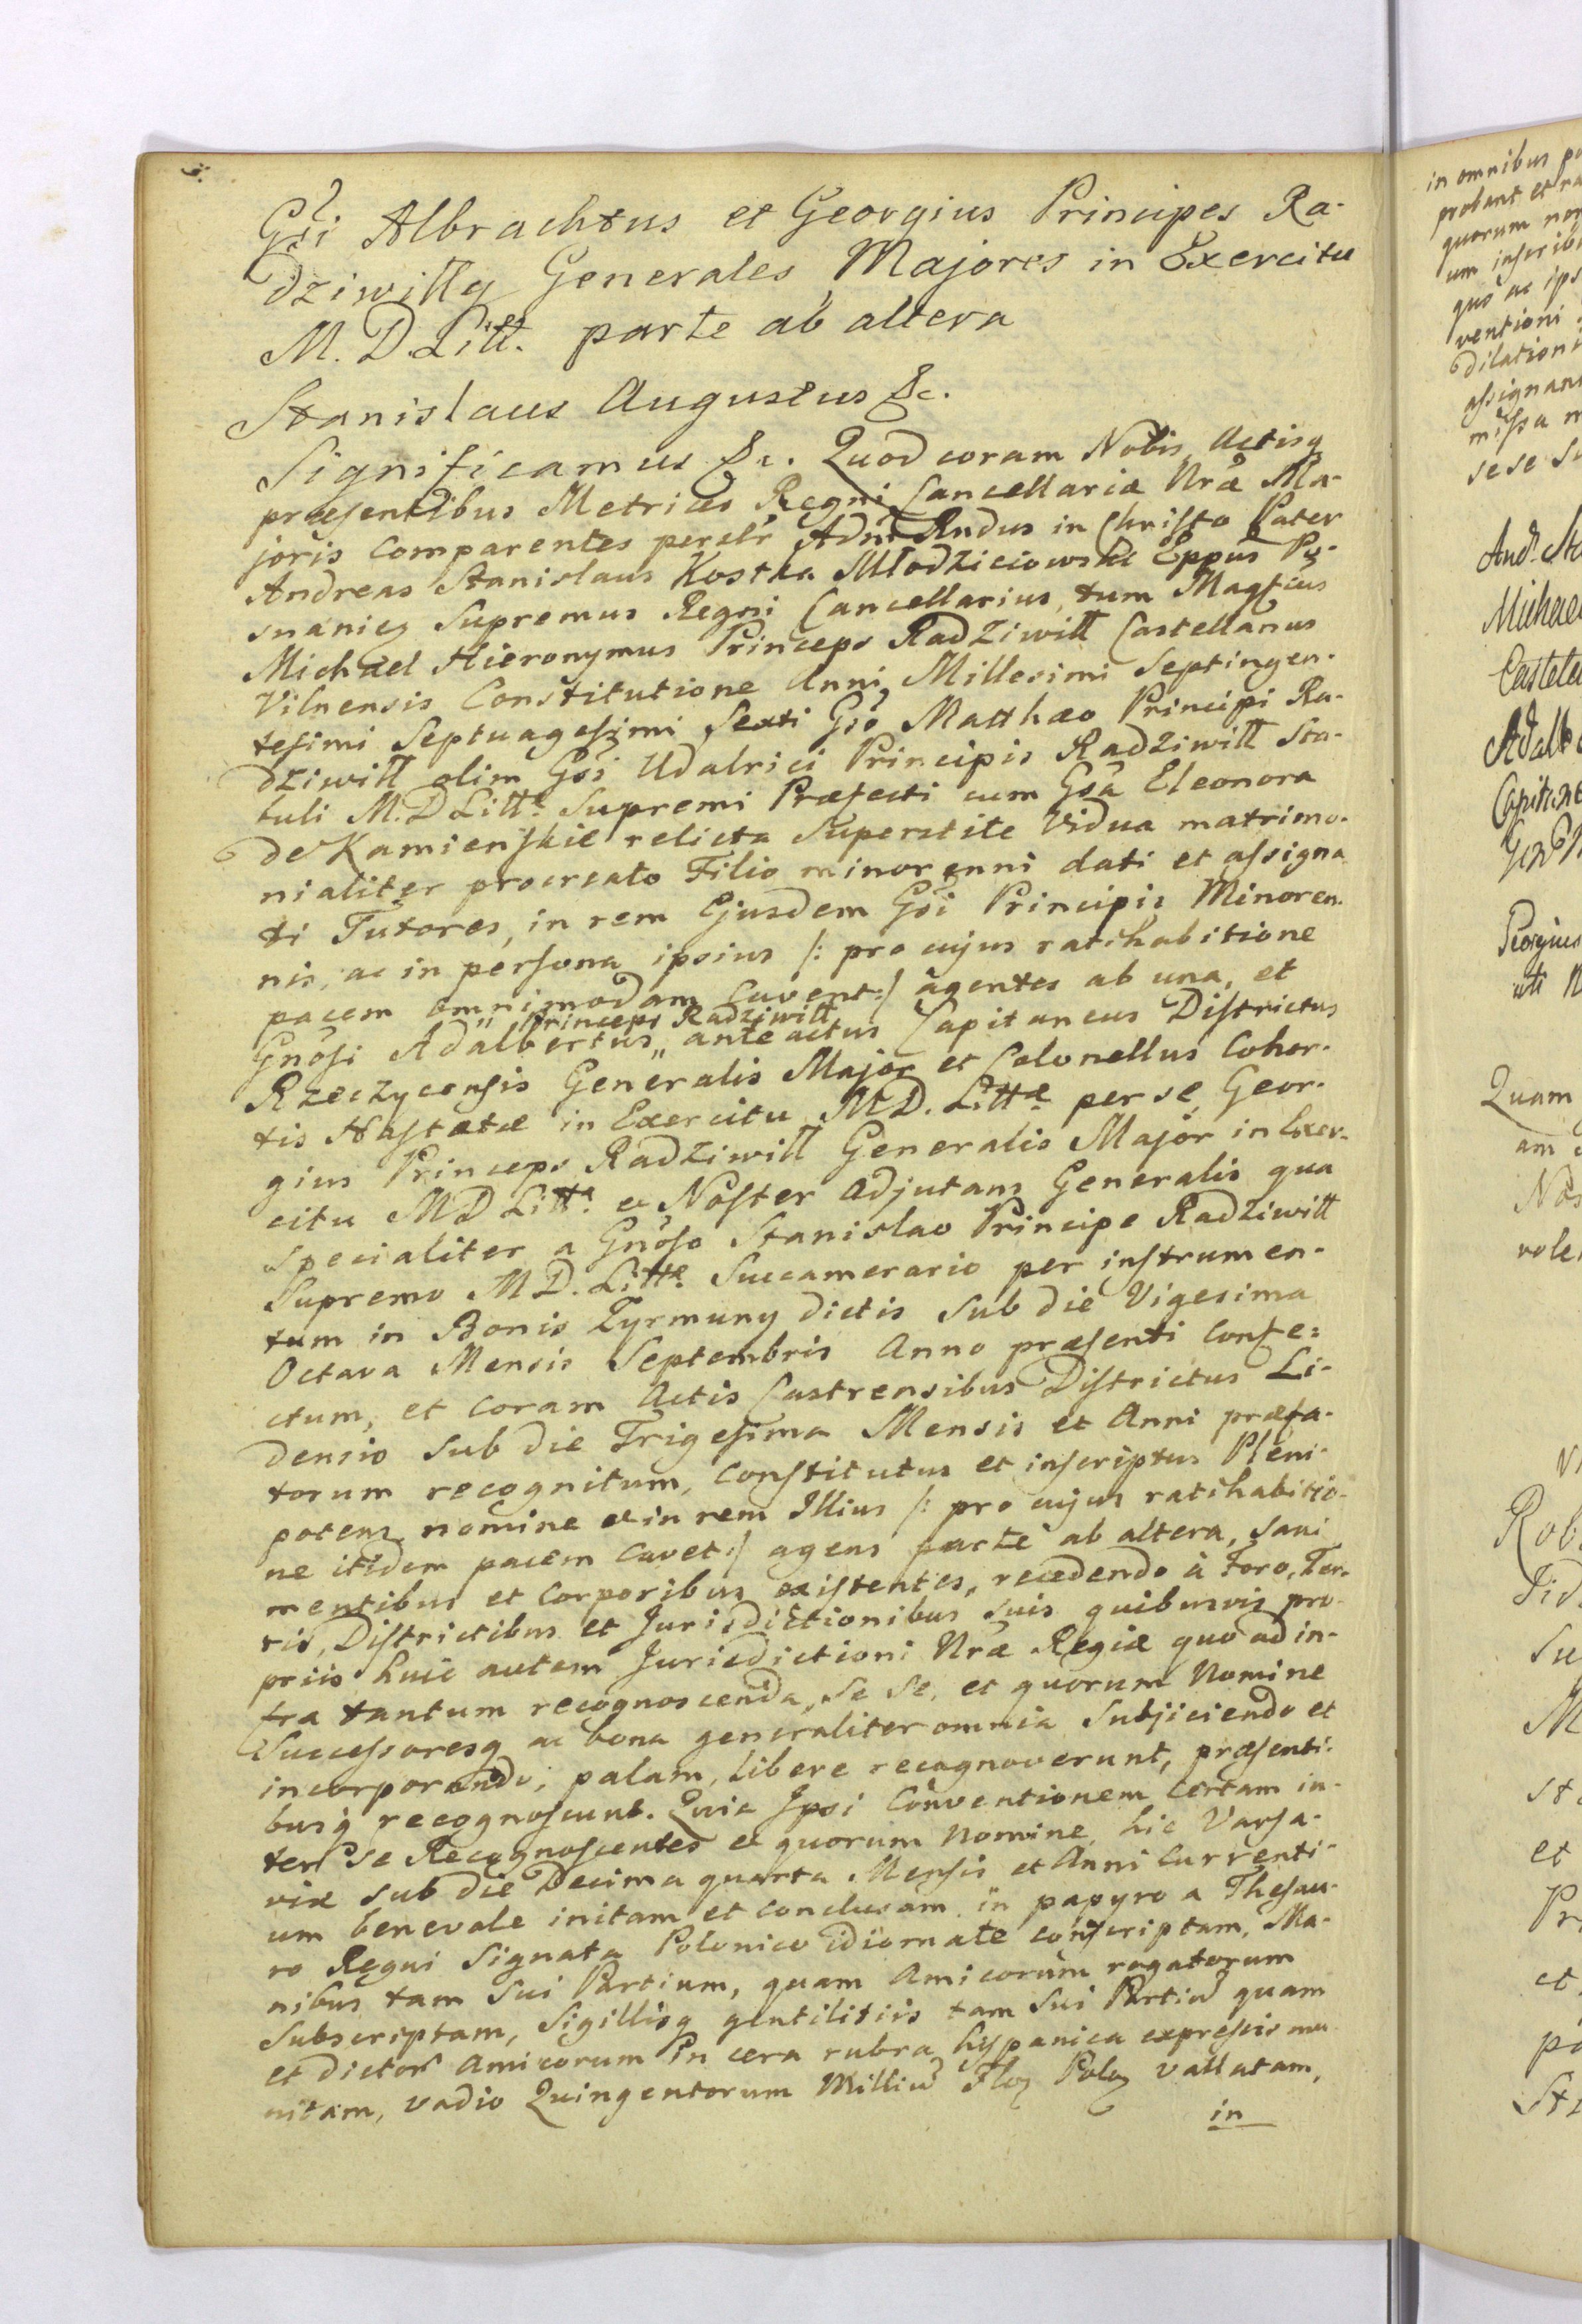 Gsi Albrachtus et Georgius Principes Ra-
dziwilly Generales Majores in Exercitu
M. D. Litt. parte ab altera
Stanislaus Augustus &c.
Significamus &c. Quod coram Nobis Actisq
præsentibus Metrices Regni Cancellariæ Nræ Ma-
joris Comparentes Adm Rndus in Christo Pater
Andreas Stanislaus Kostka Młodzieiowski Eppus Po-
snaniens Supremus Regni Cancellarius, tum Magfcus
Michael Hieronymus Princeps Radziwiłł Castellanus
Vilnensis Constitutione Anni Millesimi Septingen-
tesimi Septuagesimi Sexti Gso Matthæo Principi Ra-
dziwiłł olim Gsi Udalrici Principis Radziwiłł Sta-
buli M.D Litt. Supremi Præfecti cum Gsa Eleonora
de Kamienskie relicta Superstite Vidua matrimo-
nialiter procreato Filio minorenni dati et assigna
ti Tutores, in rem Ejusdem Gsi Principis Minoren-
nis, ac in persona ipsius /: pro cujus ratihabitione
pacem omnimodam Cavent :/ agentes ab una, et
Princeps Radziwiłł
Gnosi Adalbertus „ ante actus Capitaneus Districtus
Rzeczycensis Generalis Major et Colonellus Cohor-
tis Hastatæ in Exercitu M D. Littæ per se, Geor-
gius Princeps Radziwiłł Generalis Major in Exer-
citu MD Litt. et Noster Adjutans Generalis qua
specialiter a Gnoso Stanislao Principe Radziwiłł
Supremo M D. Litt. Succamerario per instrumen-
tum in Bonis Zyrmuny dictis sub die Vigesima
Octava Mensis Septembris Anno præsenti Confe=
ctum, et Coram Actis Castrensibus Districtus Li-
densis sub die Trigesima Mensis et Anni præfa-
torum recognitum, Constitutus et inscriptus Pleni-
potens nomine et in rem Illius /: pro cujus ratihabitio-
ne itidem pacem Cavet :/ agens parte ab altera, Sani
mentibus et Corporibus existentes, recedendo à Foro, Ter-
ris, Districtibus et Jurisdictionibus Suis quibusvis pro-
priis huic autem Jurisdictioni Nræ Regiæ quo ad in-
fra tantum recognoscenda, se se, et quorum Nomine
Successoresq ac bona generaliter omnia Subjiciendo et
incorporando, palam, libere recognoverunt, præsenti-
busq recognoscunt. Quia Ipsi Conventionem Certam in-
ter Se Recognoscentes et quorum Nomine, hic Varsa-
viæ sub die Decima quarta Mensis et Anni Currenti-
um benevole initam et Conclusam in papyro a Thesau-
ro Regni Signata Polonico idiomate conscriptam, Ma-
nibus tam Sui Partium, quam Amicorum rogatorum
Subscriptam, Sigillisq gentilitiis tam Sui Partiu quam
et dictor Amicorum in cera rubra hyspanica expressis mu
nitam, vadio Quingentorum Milliu Flor Polon vallatam,
in

in omnibus
probant et
quorum
um inscrib
quo ac ips
ventioni
dilationi
assignan
missa
sese

And. Sta
Michael
Castela
Adalb
Capitane

Georgius

Quam
am
Nos
vole

Rob

Su
M
st
et
Pr
et